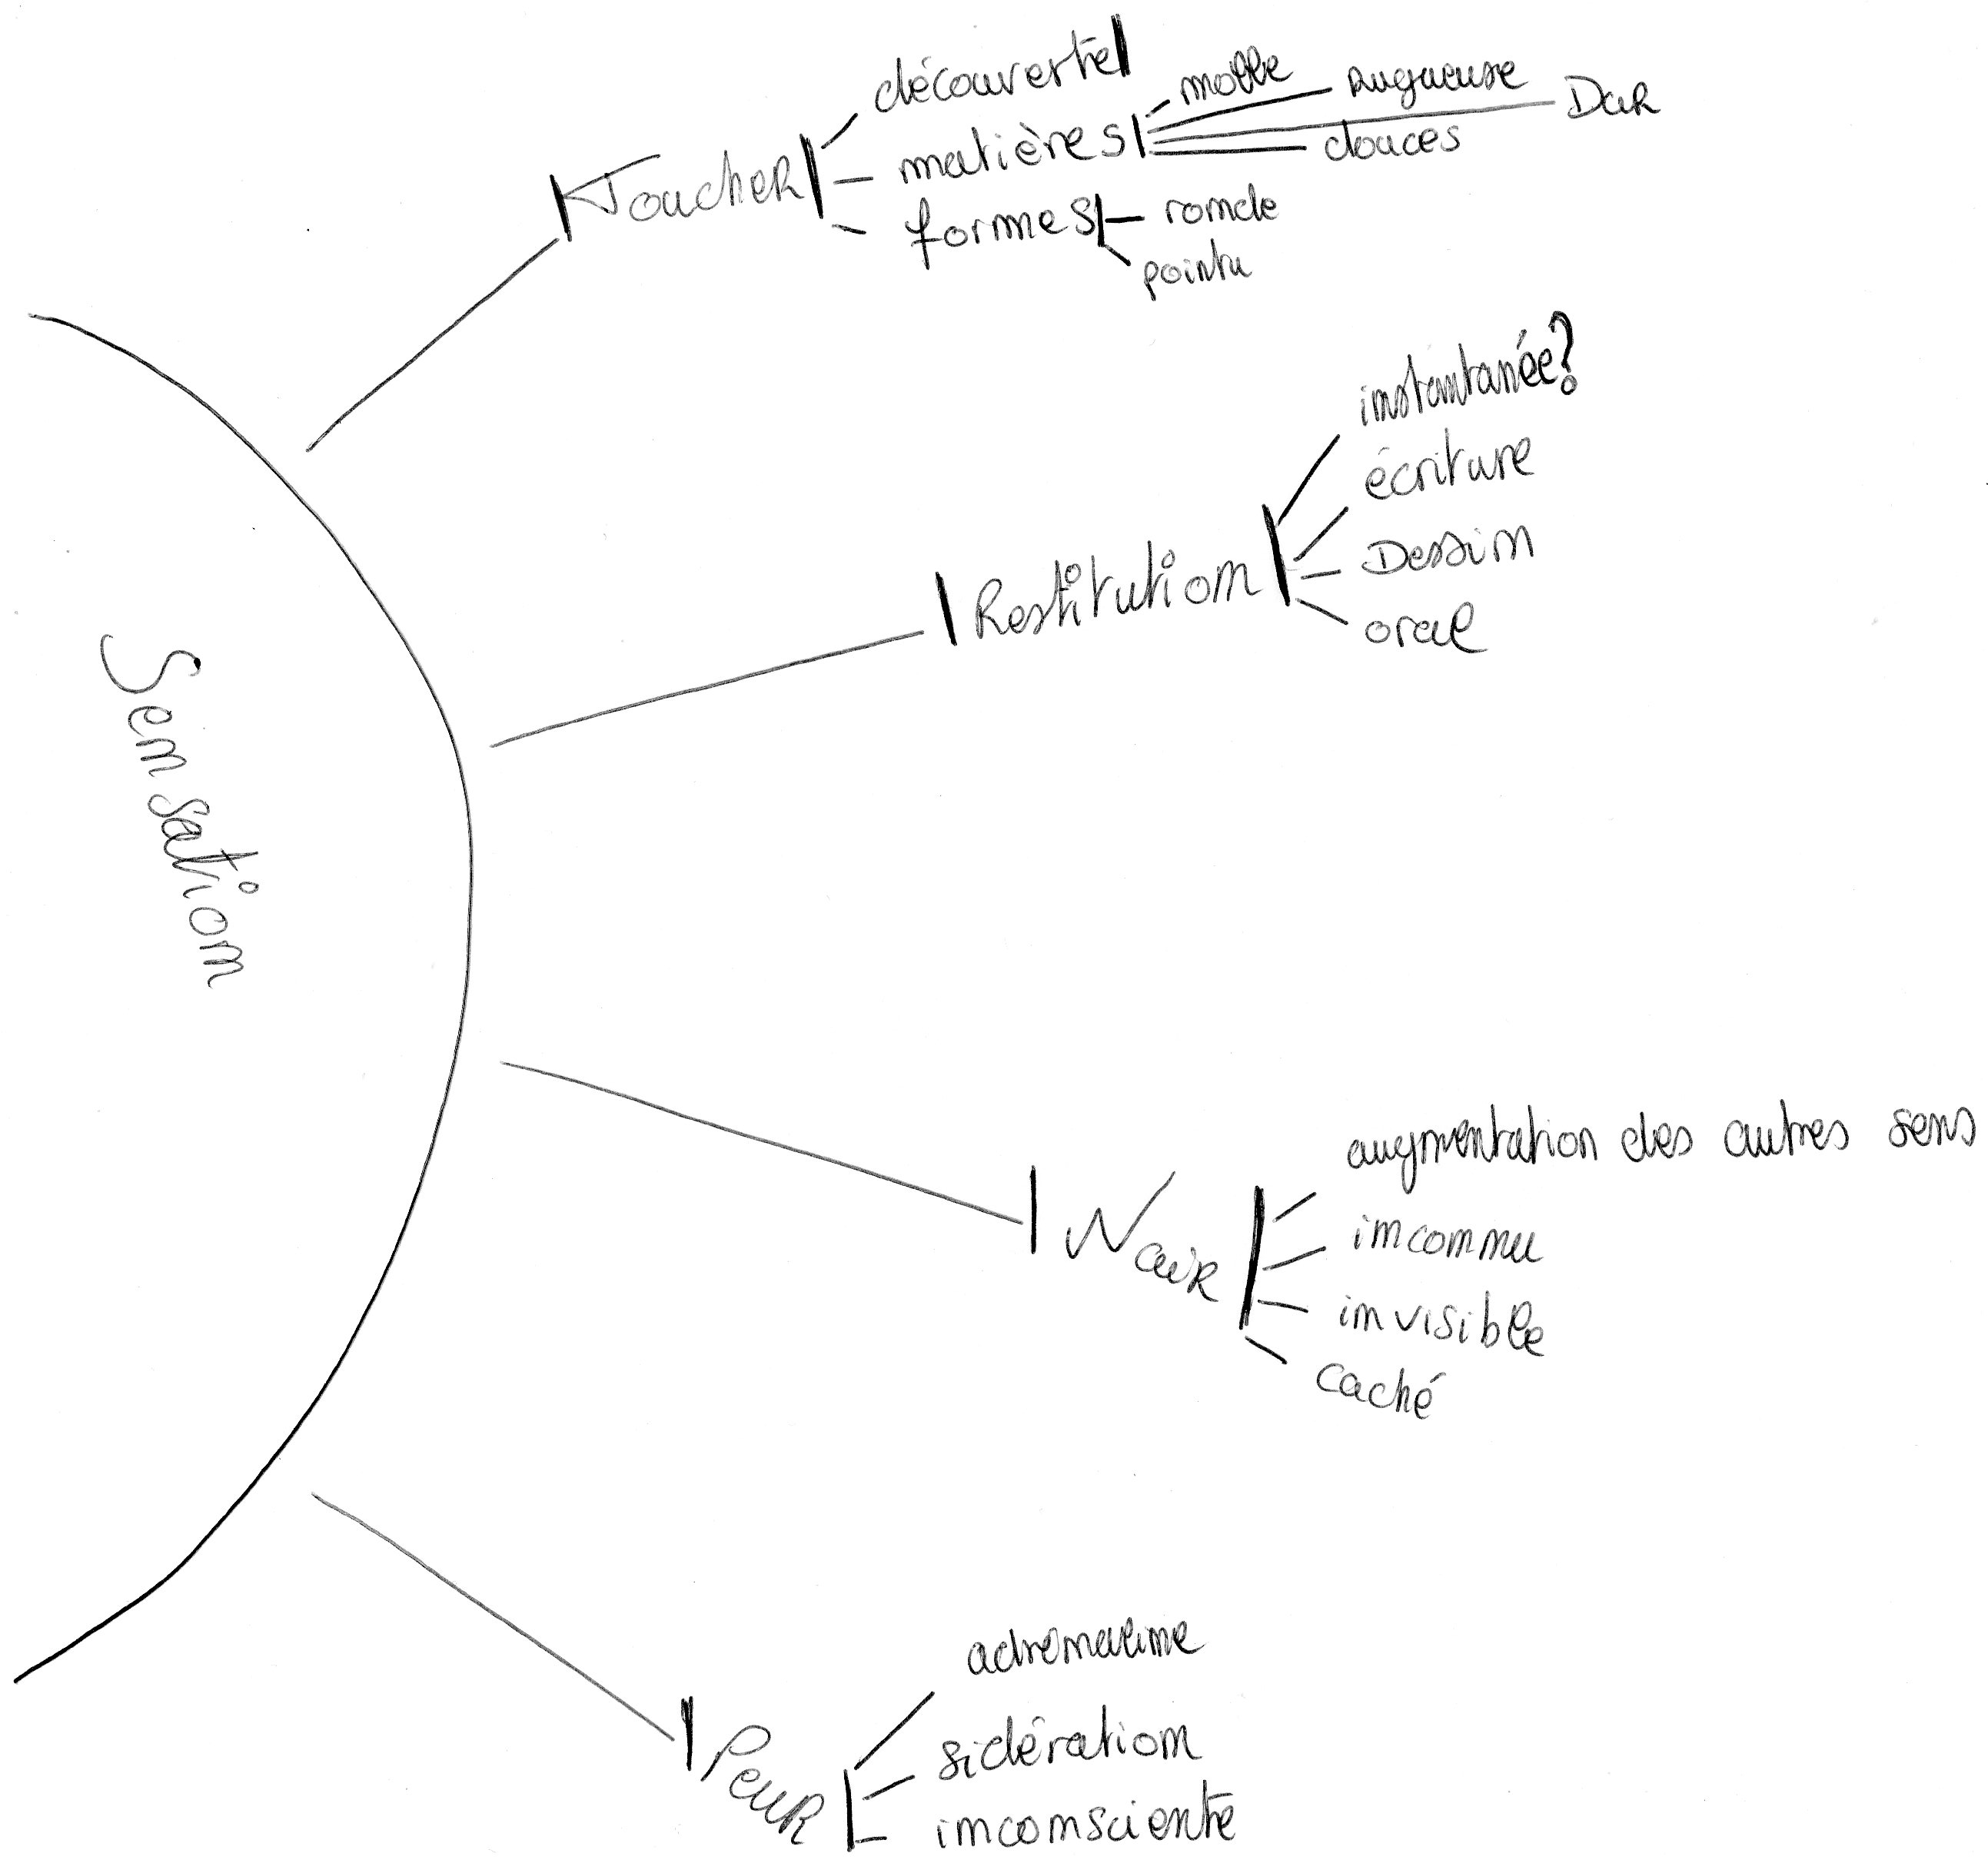 Sensation
Toucher
découverte
matières
molle
rugueuse
Dur
douces
formes
ronde
pointu
Restitution
instantanée?
écriture
Dessin
oral
Noir
augmentation des autres sens
inconnu
invisible
caché
Peur
adrenaline
sidération
inconsciente